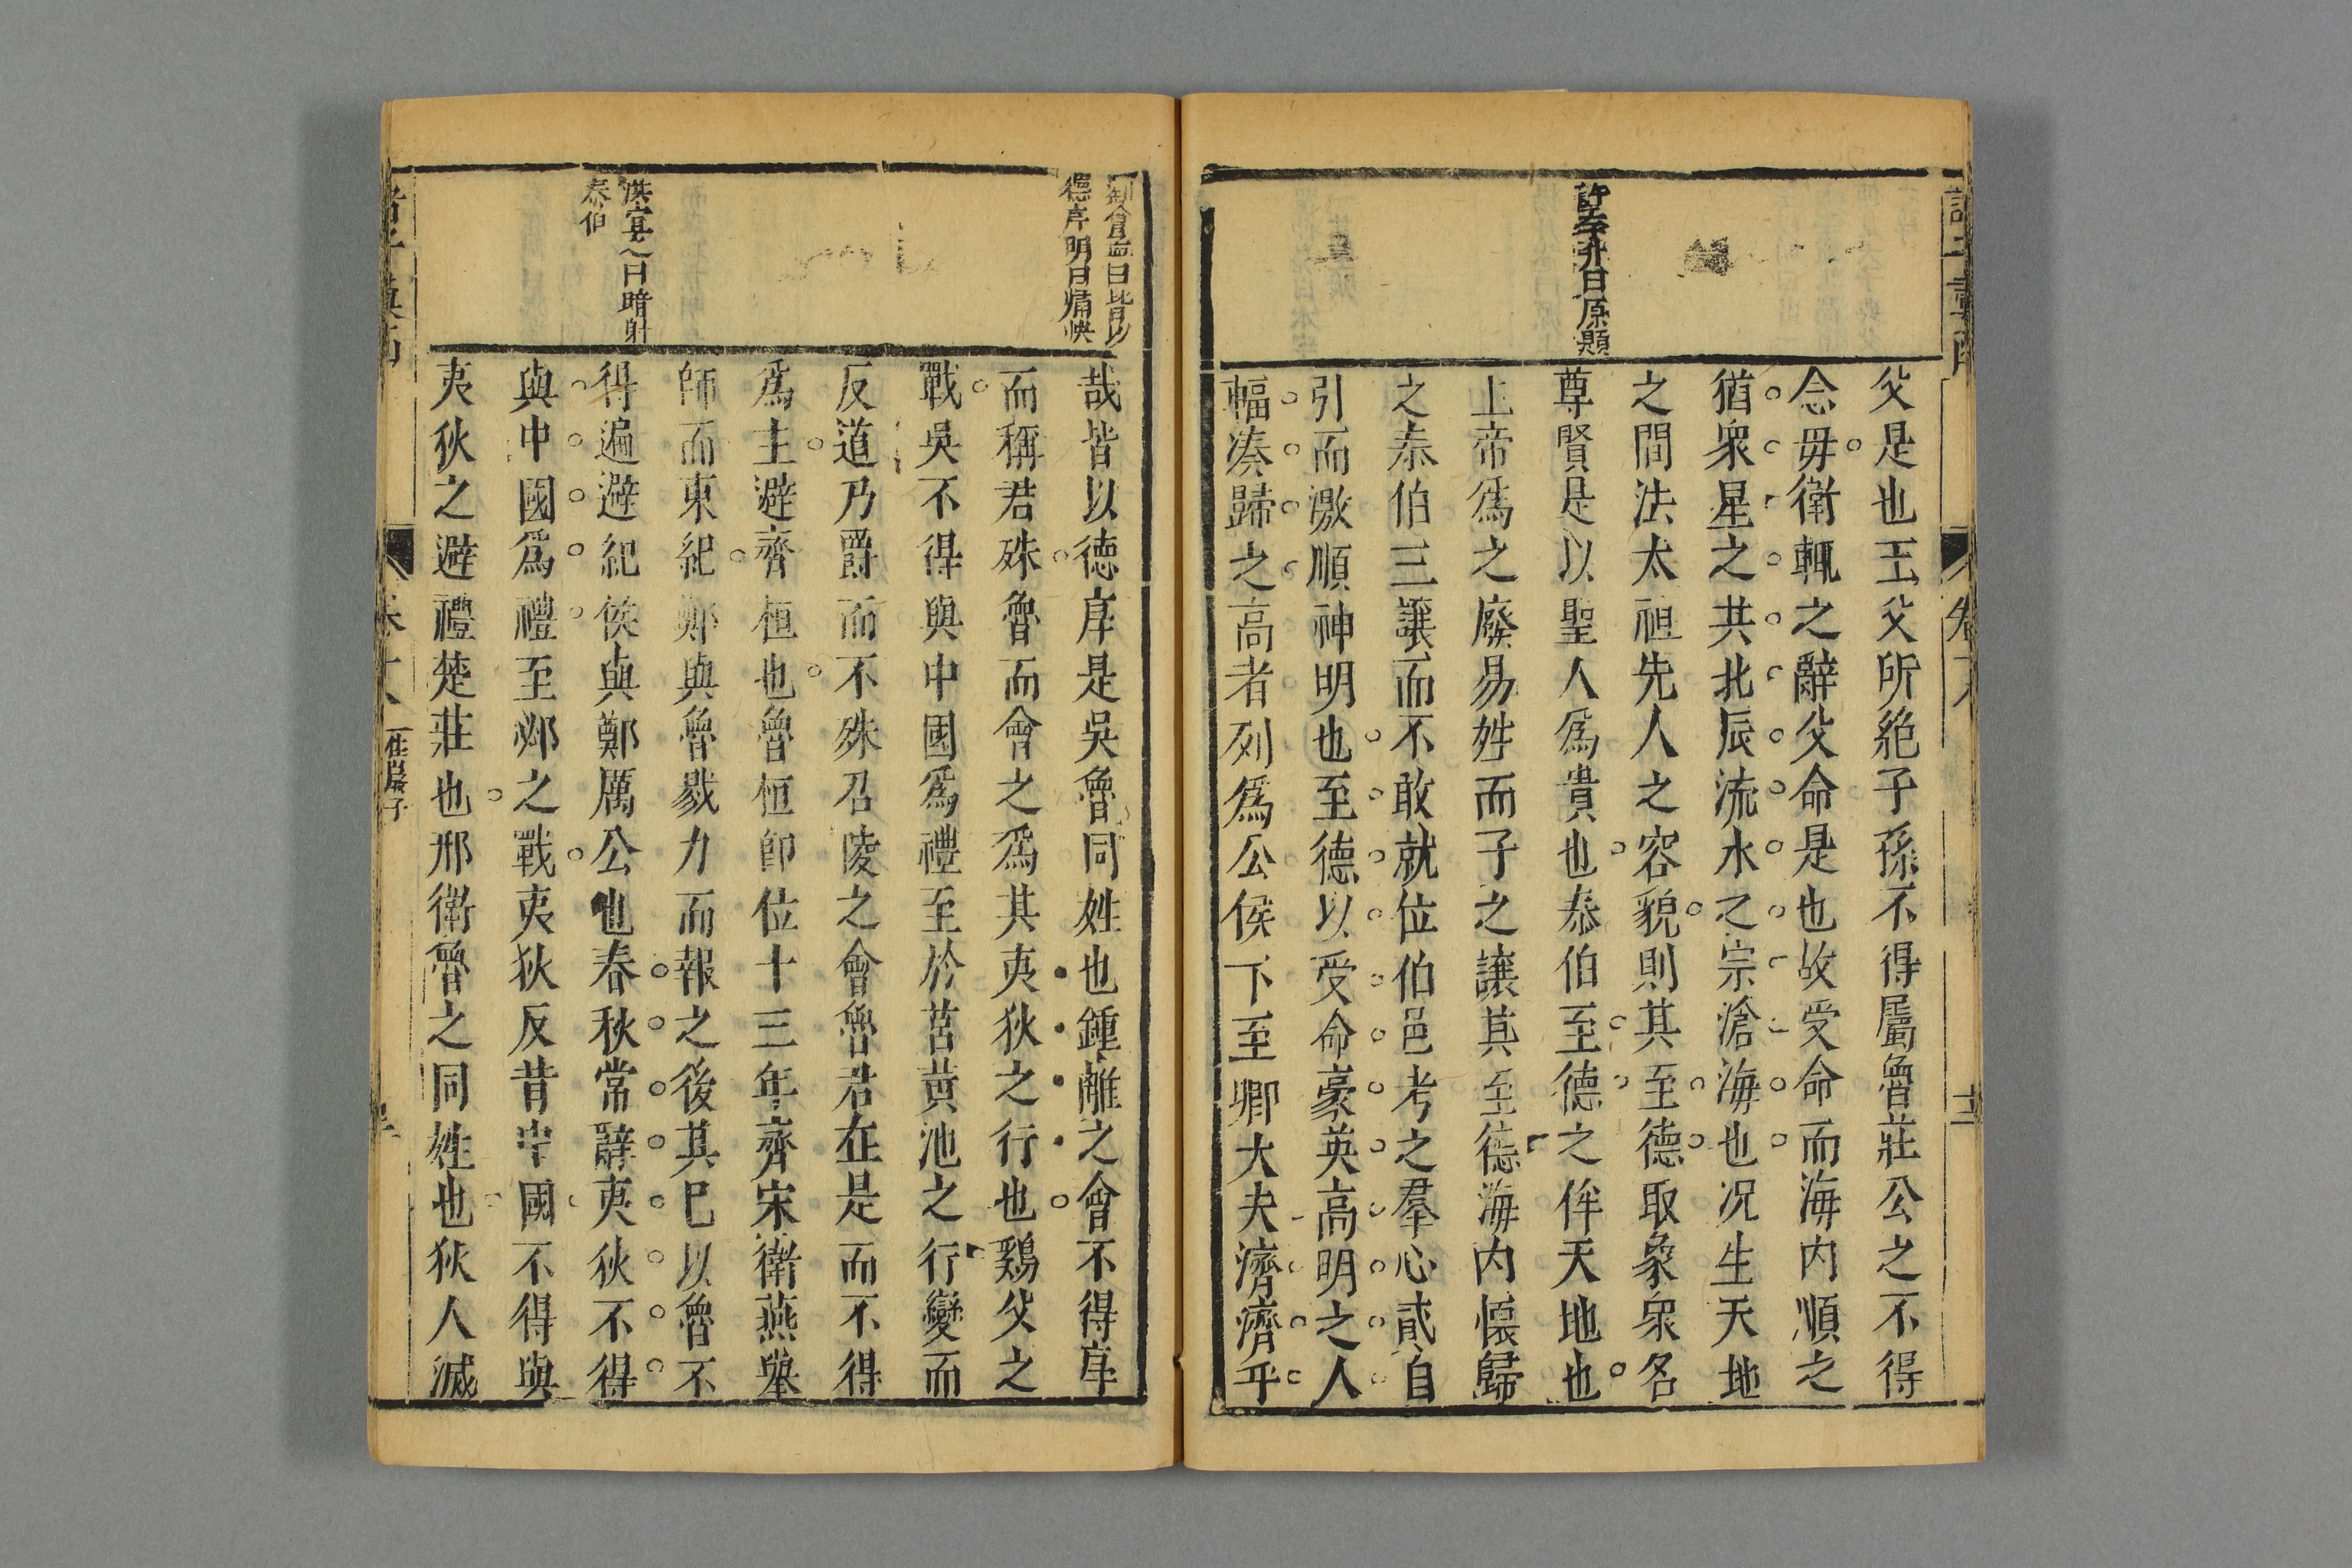 許奉升曰原題
父是也王父所絶子孫不得屬魯莊公之不得
念毋衛輒之辭父命是也故受命而海内順之
猶衆星之共北辰流水之宗滄海也况生天地
之間法太祖先人之容貌則其至德取象衆名
尊賢是以聖人爲貴也泰伯至德之侔天地也
上帝爲之廢易姓而子之讓其至德海内懷歸
之泰伯三讓而不敢就位伯邑考之羣心貳自
引而激順神明也至德以受命豪英高明之人
輻湊歸之高者列爲公侯下至卿大夫濟濟乎
德序明曰痛快
洪容之曰暗射
泰伯
哉皆以德序是吳魯同姓也鍾離之會不得序
而稱君殊魯而會之爲其夷狄之行也鷄父之
戰吳不得與中國爲禮至於莒黄池之行變而
反道乃爵而不殊召陵之會魯君在是而不得
爲主避齊桓也魯桓卽位十三年齊宋衛燕舉
師而東紀鄭與魯戮力而報之後其已以魯不
得遍避紀侯與鄭厲公也春秋常辭夷狄不得
與中國爲禮至邲之戰夷狄反昔中國不得與
夷狄之避禮楚莊也邢衛魯之同姓也狄人滅